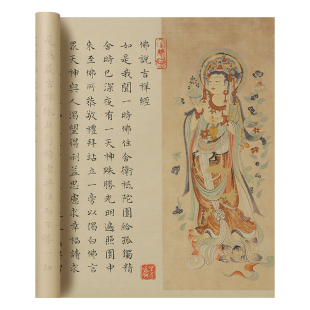 佛說吉祥經
如是我聞一時佛住舍衛祇陀園給孤獨精
舍時已深夜有一天神殊勝光明遍照園中
來至佛所恭敬禮拜站立一旁以偈白佛言
眾天神與人渴望得利益思慮求幸福請求